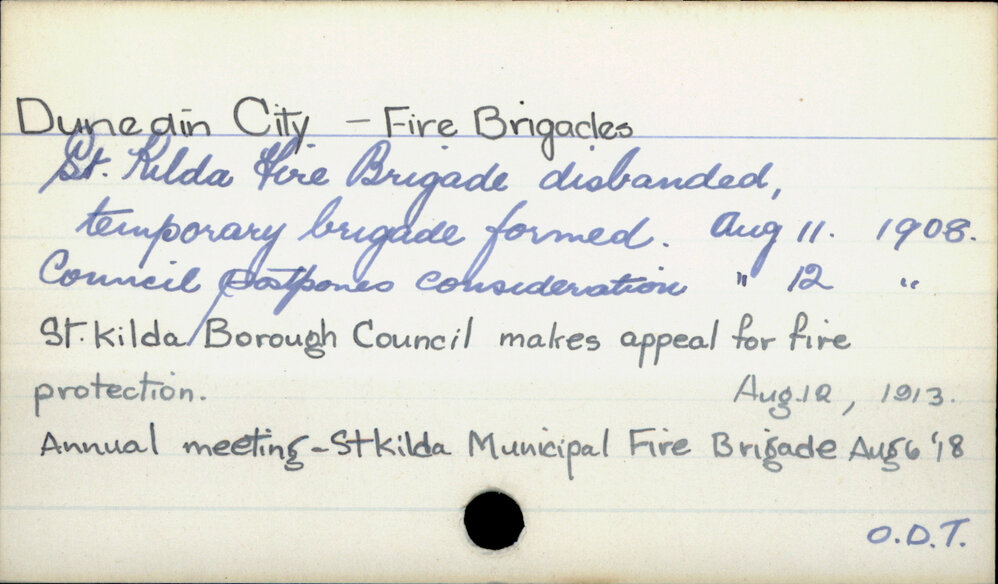 Dunedin City - Fire Brigades
St. Kilda Fire Brigade disbanded,
temporary brigade formed. Aug 11. 1908.
Council postpones consideration " 12 "
St. Kilda Borough Council makes appeal for fire
protection. Aug. 12, 1913.
Annual meeting - St Kilda Municipal Fire Brigade Aug 6 '18
O.D.T.